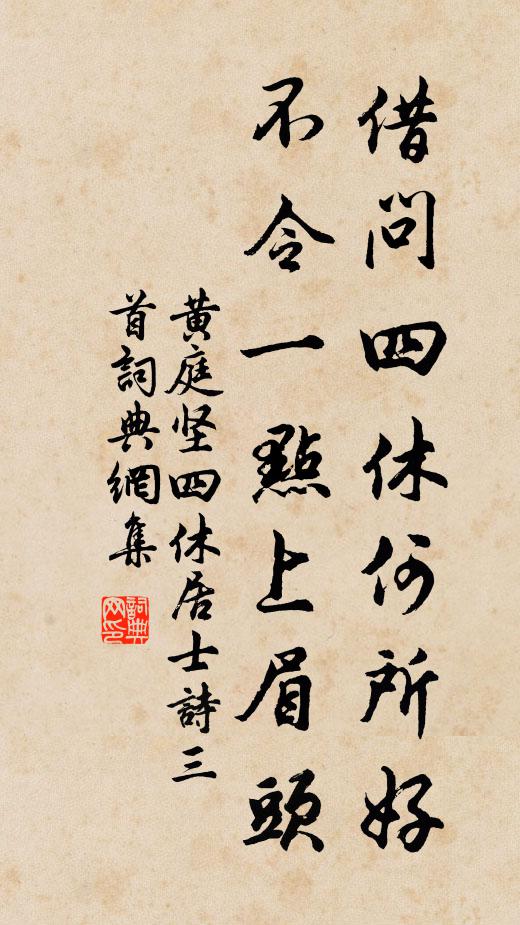 借問四休何所好
不令一點上眉頭
黄庭坚四休居士詩三
首詞典網集
詞典
网印